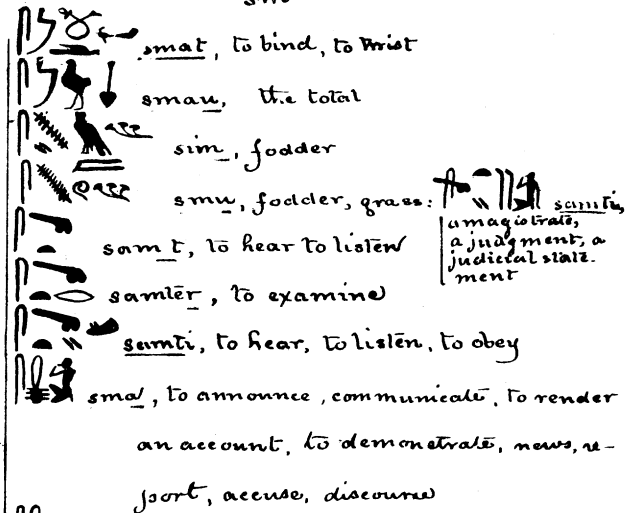 smat, to bind, to twist
smau, the total
sim, fodder
smu, fodder, grass:
samti,
a magistrate,
a judgment, a
judicial state-
ment
samt, to hear to listen
samter, to examine
samti, to hear, to listen, to obey
sma, to announce, communicate, to render
an account, to demonstrate, news, re-
port, accuse, discourse